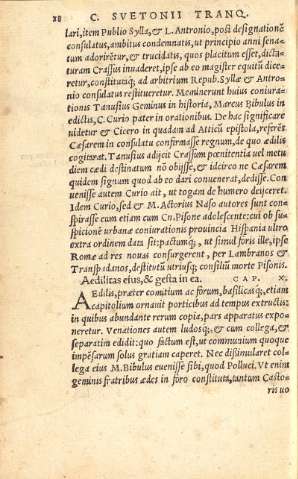 28 C. SVETONII TRANQ.
lari, item Publio Syllæ, & L. Antronio, post designationẽ
consulatus, ambitus condemnatis, ut principio anni sena-
tum adorirẽtur, & trucidatis, quos placitum esset, dicta-
turam Crassus inuaderet, ipse ab eo magister equitũ dice-
retur, constitutaq; ad arbitrium Repub. Syllæ & Antro-
nio consulatus restitueretur. Meminerunt huius coniura-
tionis Tanusius Geminus in historia, Marcus Bibulus in
edictis, C. Curio pater in orationibus. De hac significare
uidetur & Cicero in quadam ad Atticũ epistola, referẽs
Cæsarem in consulatu confirmasse regnum, de quo ædilis
cogitarat. Tanusius adijcit Crassum pœnitentia uel metu
diem cædi destinatum nõ obijsse, & idcirco ne Cæsarem
quidem signum quod ab eo dari conuenerat, dedisse. Con
uenisse autem Curio ait, ut togam de humero deijceret.
Idem Curio, sed & M. Actorius Naso autores sunt con-
spirasse eum etiam cum Cn. Pisone adolescente: cui ob su-
spicionẽ urbanæ coniurationis prouincia Hispania ultro
extra ordinem data sit: pactumq;, ut simul foris ille, ipse
Romæ ad res nouas consurgerent, per Lambranos &
Transpadanos, destitutũ utriusq; consiliũ morte Pisonis.
Aedilitas eius, & gesta in ea. CAP. X.
AEdilis, præter comitium ac forum, basilicasq;, etiam
capitolium ornauit porticibus ad tempus extructis:
in quibus abundante rerum copia, pars apparatus expo-
neretur. Venationes autem ludosq;, & cum collega, &
separatim edidit: quo factum est, ut communium quoque
impẽsarum solus gratiam caperet. Nec dissimularet col-
lega eius M. Bibulus euenisse sibi, quod Polluci. Vt enim
geminis fratribus ædes in foro constituta, tantum Casto-
ris uo